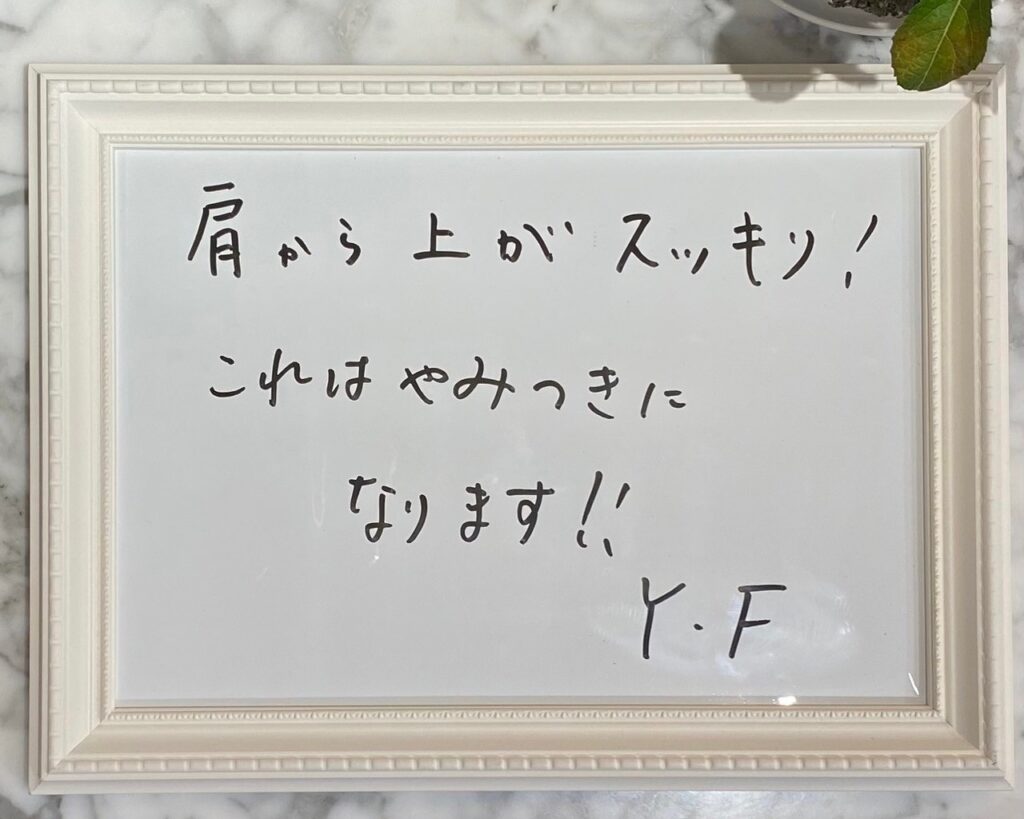 肩から上がスッキリ!
これはやみつきに
なります!!
Y.F